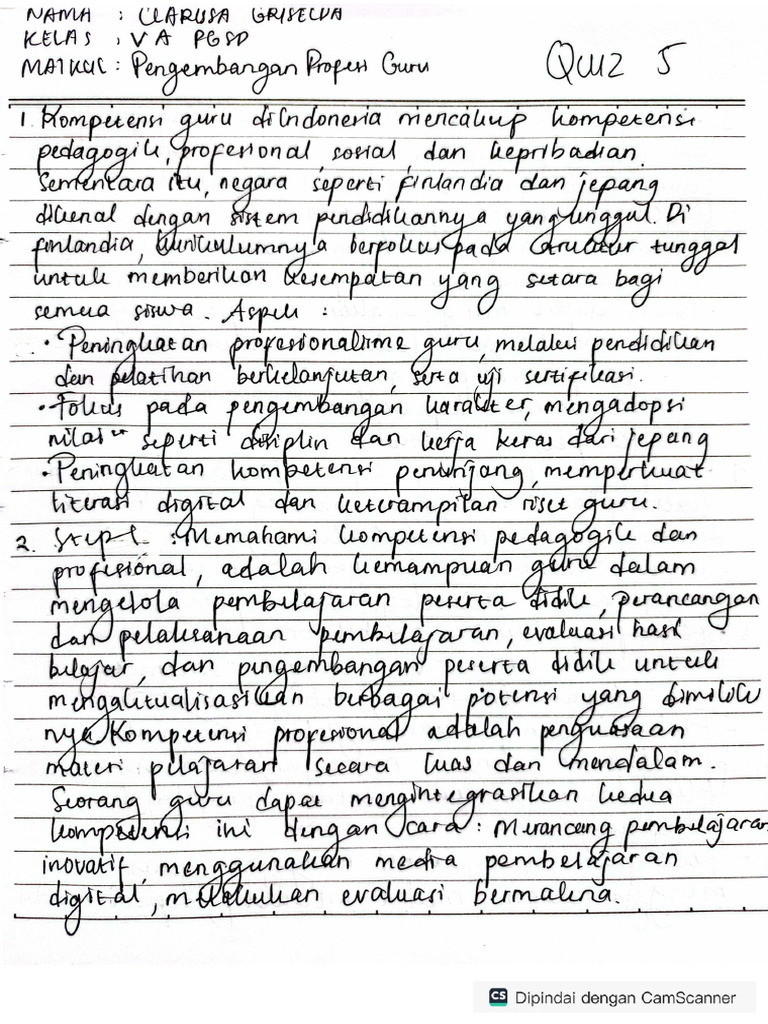 NAMA : CLARUSA GRISELDA
KELAS : V A PGSD
MATKUL : Pengembangan Profesi Guru
QUIZ 5
1. Kompetensi guru diIndonesia mencakup kompetensi
pedagogik, profesional, sosial, dan kepribadian.
Sementara itu, negara seperti Finlandia dan jepang
dikenal dengan sistem pendidikannya yang unggul. Di
finlandia, kurikulumnya berfokus pada struktur tunggal
untuk memberikan kesempatan yang setara bagi
semua siswa. Aspek :
• Peningkatan profesionalisme guru, melalui pendidikan
dan pelatihan berkelanjutan, serta uji sertifikasi.
• Fokus pada pengembangan karakter, mengadopsi
nilai" seperti disiplin dan kerja keras dari jepang
• Peningkatan kompetensi penunjang, memperkuat
literasi digital dan keterampilan riset guru.
2. Step 1 : Memahami kompetensi pedagogik dan
profesional, adalah kemampuan guru dalam
mengelola pembelajaran peserta didik, perancangan
dan pelaksanaan pembelajaran, evaluasi hasil
belajar, dan pengembangan peserta didik untuk
mengaktualisasikan berbagai potensi yang dimiliki
nya Kompetensi profesional adalah penguasaan
materi pelajaran secara luas dan mendalam.
Seorang guru dapat mengintegrasikan kedua
kompetensi ini dengan cara : Merancang pembelajaran
inovatif, menggunakan media pembelajaran
digital, melakukan evaluasi bermakna.
CS Dipindai dengan CamScanner